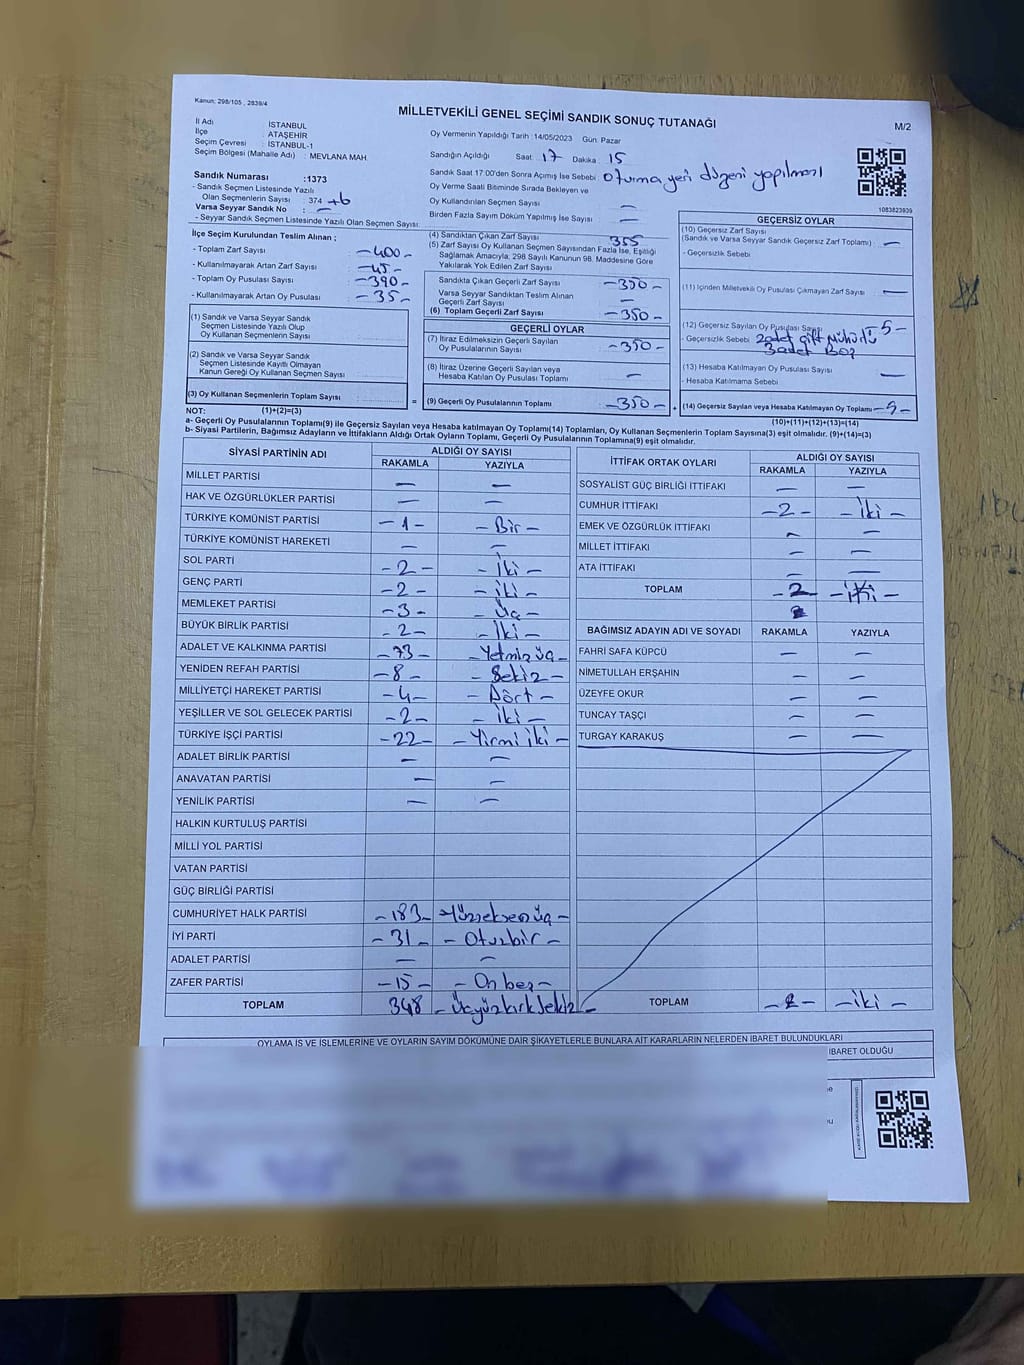 Kanun: 298/105 , 2839/4
MİLLETVEKİLİ GENEL SEÇİMİ SANDIK SONUÇ TUTANAĞI
M/2
İl Adı : İSTANBUL
İlçe : ATAŞEHİR
Seçim Çevresi : İSTANBUL-1
Seçim Bölgesi (Mahalle Adı) : MEVLANA MAH.
Sandık Numarası :1373
- Sandık Seçmen Listesinde Yazılı
Olan Seçmenlerin Sayısı : 374 +6
Varsa Seyyar Sandık No : —
- Seyyar Sandık Seçmen Listesinde Yazılı Olan Seçmen Sayısı:
Oy Vermenin Yapıldığı Tarih :14/05/2023 Gün: Pazar
Sandığın Açıldığı Saat: 17 Dakika: 15
Sandık Saat 17:00'den Sonra Açımış İse Sebebi: Oturma yeri düzeni yapılması
Oy Verme Saati Bitiminde Sırada Bekleyen ve
Oy Kullandırılan Seçmen Sayısı —
Birden Fazla Sayım Döküm Yapılmış İse Sayısı —
1083823939
İlçe Seçim Kurulundan Teslim Alınan ;
- Toplam Zarf Sayısı -400-
- Kullanılmayarak Artan Zarf Sayısı -45-
- Toplam Oy Pusulası Sayısı -390-
- Kullanılmayarak Artan Oy Pusulası -35-
(1) Sandık ve Varsa Seyyar Sandık
Seçmen Listesinde Yazılı Olup
Oy Kullanan Seçmenlerin Sayısı
(2) Sandık ve Varsa Seyyar Sandık
Seçmen Listesinde Kayıtlı Olmayan
Kanun Gereği Oy Kullanan Seçmen Sayısı
(3) Oy Kullanan Seçmenlerin Toplam Sayısı
(4) Sandıktan Çıkan Zarf Sayısı 355
(5) Zarf Sayısı Oy Kullanan Seçmen Sayısından Fazla İse, Eşitliği
Sağlamak Amacıyla, 298 Sayılı Kanunun 98. Maddesine Göre
Yakılarak Yok Edilen Zarf Sayısı
Sandıkta Çıkan Geçerli Zarf Sayısı -350-
Varsa Seyyar Sandıktan Teslim Alınan
Geçerli Zarf Sayısı —
(6) Toplam Geçerli Zarf Sayısı -350-
GEÇERLİ OYLAR
(7) İtiraz Edilmeksizin Geçerli Sayılan
Oy Pusulalarının Sayısı -350-
(8) İtiraz Üzerine Geçerli Sayılan veya
Hesaba Katılan Oy Pusulası Toplamı —
= (9) Geçerli Oy Pusulalarının Toplamı -350-
GEÇERSİZ OYLAR
(10) Geçersiz Zarf Sayısı
(Sandık ve Varsa Seyyar Sandık Geçersiz Zarf Toplamı) —
- Geçersizlik Sebebi
(11) İçinden Milletvekili Oy Pusulası Çıkmayan Zarf Sayısı —
(12) Geçersiz Sayılan Oy Pusulası Sayısı -5-
- Geçersizlik Sebebi 2 adet çift mühürlü
3 adet Boş
(13) Hesaba Katılmayan Oy Pusulası Sayısı —
- Hesaba Katılmama Sebebi
+ (14) Geçersiz Sayılan veya Hesaba Katılmayan Oy Toplamı -5-
NOT: (1)+(2)=(3)
(10)+(11)+(12)+(13)=(14)
a- Geçerli Oy Pusulalarının Toplamı(9) ile Geçersiz Sayılan veya Hesaba katılmayan Oy Toplamı(14) Toplamları, Oy Kullanan Seçmenlerin Toplam Sayısına(3) eşit olmalıdır. (9)+(14)=(3)
b- Siyasi Partilerin, Bağımsız Adayların ve İttifakların Aldığı Ortak Oyların Toplamı, Geçerli Oy Pusulalarının Toplamına(9) eşit olmalıdır.
SİYASİ PARTİNİN ADI ALDIĞI OY SAYISI
RAKAMLA YAZIYLA
MİLLET PARTİSİ — —
HAK VE ÖZGÜRLÜKLER PARTİSİ — —
TÜRKİYE KOMÜNİST PARTİSİ -1- -Bir-
TÜRKİYE KOMÜNİST HAREKETİ — —
SOL PARTİ -2- -İki-
GENÇ PARTİ -2- -iki-
MEMLEKET PARTİSİ -3- -Üç-
BÜYÜK BİRLİK PARTİSİ -2- -İki-
ADALET VE KALKINMA PARTİSİ -73- -Yetmiş üç-
YENİDEN REFAH PARTİSİ -8- -Sekiz-
MİLLİYETÇİ HAREKET PARTİSİ -4- -Dört-
YEŞİLLER VE SOL GELECEK PARTİSİ -2- -İki-
TÜRKİYE İŞÇİ PARTİSİ -22- -Yirmi iki-
ADALET BİRLİK PARTİSİ — —
ANAVATAN PARTİSİ — —
YENİLİK PARTİSİ — —
HALKIN KURTULUŞ PARTİSİ
MİLLİ YOL PARTİSİ
VATAN PARTİSİ
GÜÇ BİRLİĞİ PARTİSİ
CUMHURİYET HALK PARTİSİ -183- -Yüzseksenüç-
İYİ PARTİ -31- -Otuzbir-
ADALET PARTİSİ — —
ZAFER PARTİSİ -15- -On beş-
TOPLAM 348 -Üçyüzkırksekiz-
İTTİFAK ORTAK OYLARI ALDIĞI OY SAYISI
RAKAMLA YAZIYLA
SOSYALİST GÜÇ BİRLİĞİ İTTİFAKI — —
CUMHUR İTTİFAKI -2- -İki-
EMEK VE ÖZGÜRLÜK İTTİFAKI — —
MİLLET İTTİFAKI — —
ATA İTTİFAKI — —
TOPLAM -2- -iki-
BAĞIMSIZ ADAYIN ADI VE SOYADI RAKAMLA YAZIYLA
FAHRİ SAFA KÜPCÜ — —
NİMETULLAH ERŞAHİN — —
ÜZEYFE OKUR — —
TUNCAY TAŞÇI — —
TURGAY KARAKUŞ — —
TOPLAM -2- -iki-
OYLAMA İŞ VE İŞLEMLERİNE VE OYLARIN SAYIM DÖKÜMÜNE DAİR ŞİKAYETLERLE BUNLARA AİT KARARLARIN NELERDEN İBARET BULUNDUKLARI
İBARET OLDUĞU